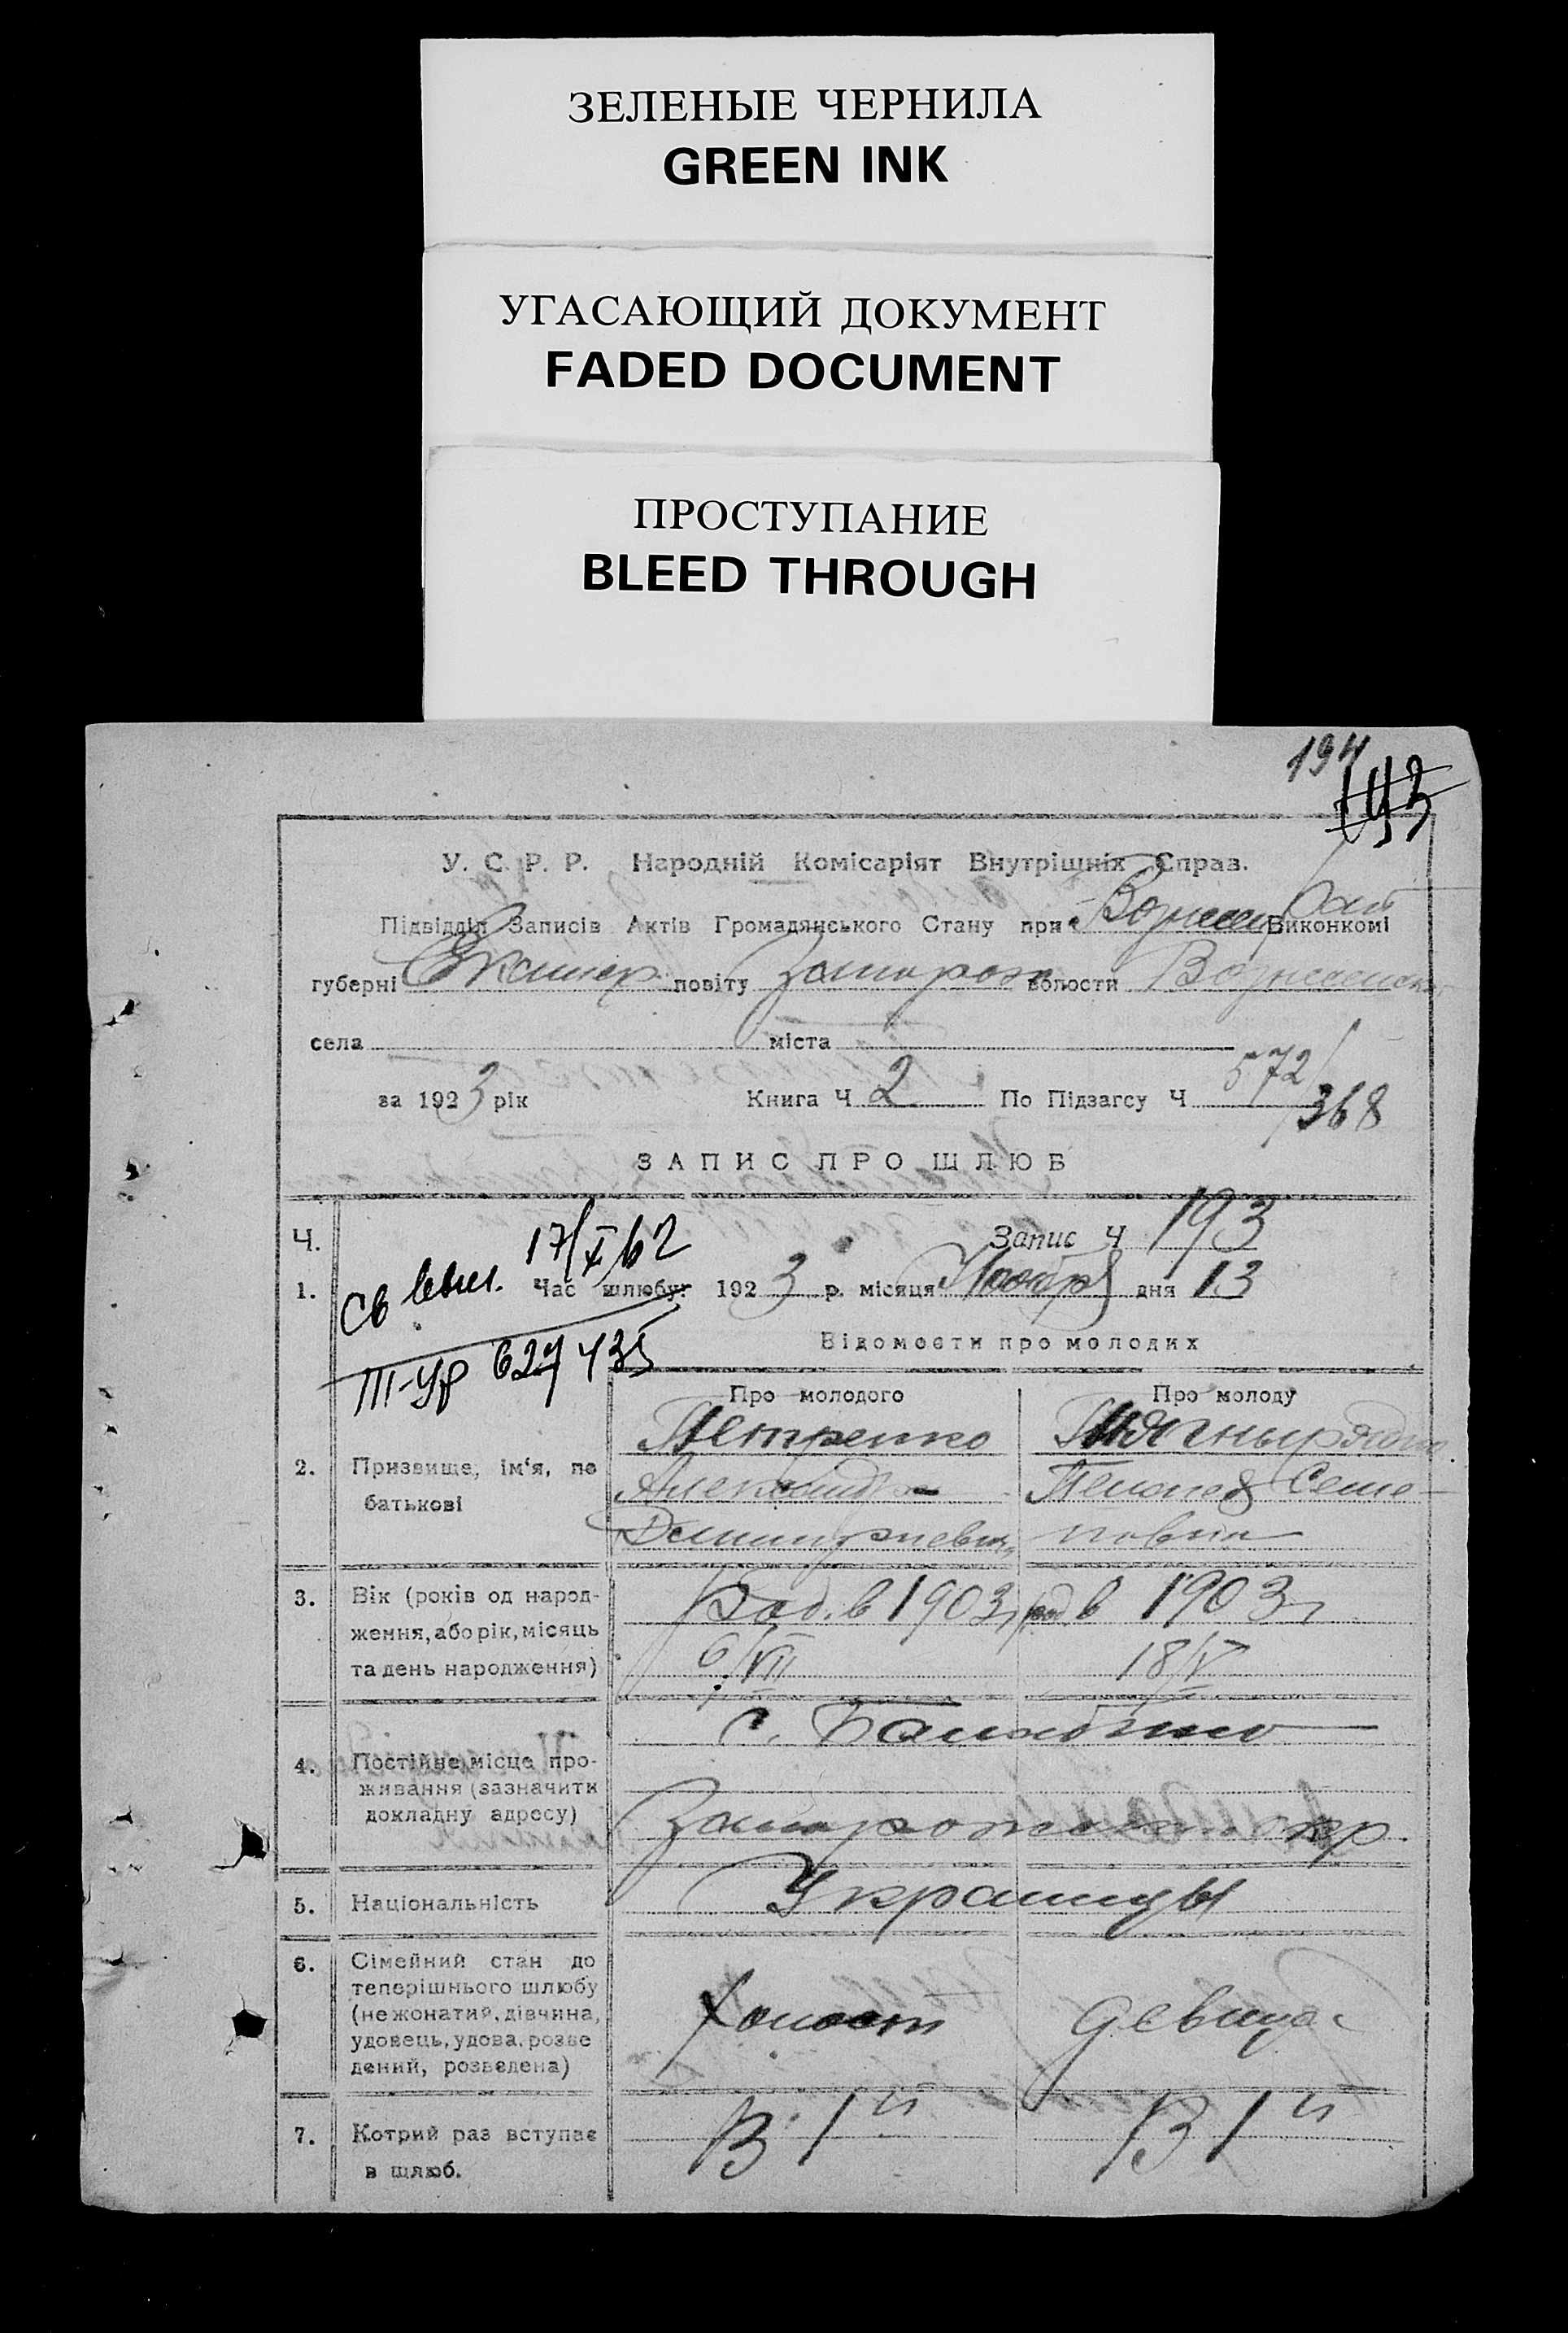 ЗЕЛЕНЫЕ ЧЕРНИЛА
GREEN INK
УГАСАЮЩИЙ ДОКУМЕНТ
FADED DOCUMENT
ПРОСТУПАНИЕ
BLEED THROUGH
194
143
У. С. Р. Р. Народній Комісаріят Внутрішніх Справ.
Підвідділ Записів Актів Громадянського Стану при Виконкомі
губерні Екатер. повіту Запорож волости Вознесенск
села міста
за 1923 рік Книга Ч 2 По Підзагсу Ч 572/368
ЗАПИС ПРО ШЛЮБ
Ч. Запис Ч 193
17/X 62
1. Св Час шлюбу: 1923 р. місяця Ноября дня 13
Відомости про молодих
III-УР 627435
Про молодого Про молоду
Петренко Тягнырядно
2. Призвище, ім‘я, по батькові
Александр Пелагея Семе-
Димитриевич новна
3. Вік (років од народ-
ження, або рік, місяць
та день народження)
Род. в 1903 г род в 1903 г
6/VII 18/V
с. Балабино
4. Постійне місце про-
живання (зазначити
докладну адресу)
Запорожск окр.
5. Національність Украинцы
6. Сімейний стан до
теперішнього шлюбу
(не жонатий, дівчина,
удовець, удова, розве
дений, розведена)
Холост девица
7. Котрий раз вступає
в шлюб.
В 1й В 1й